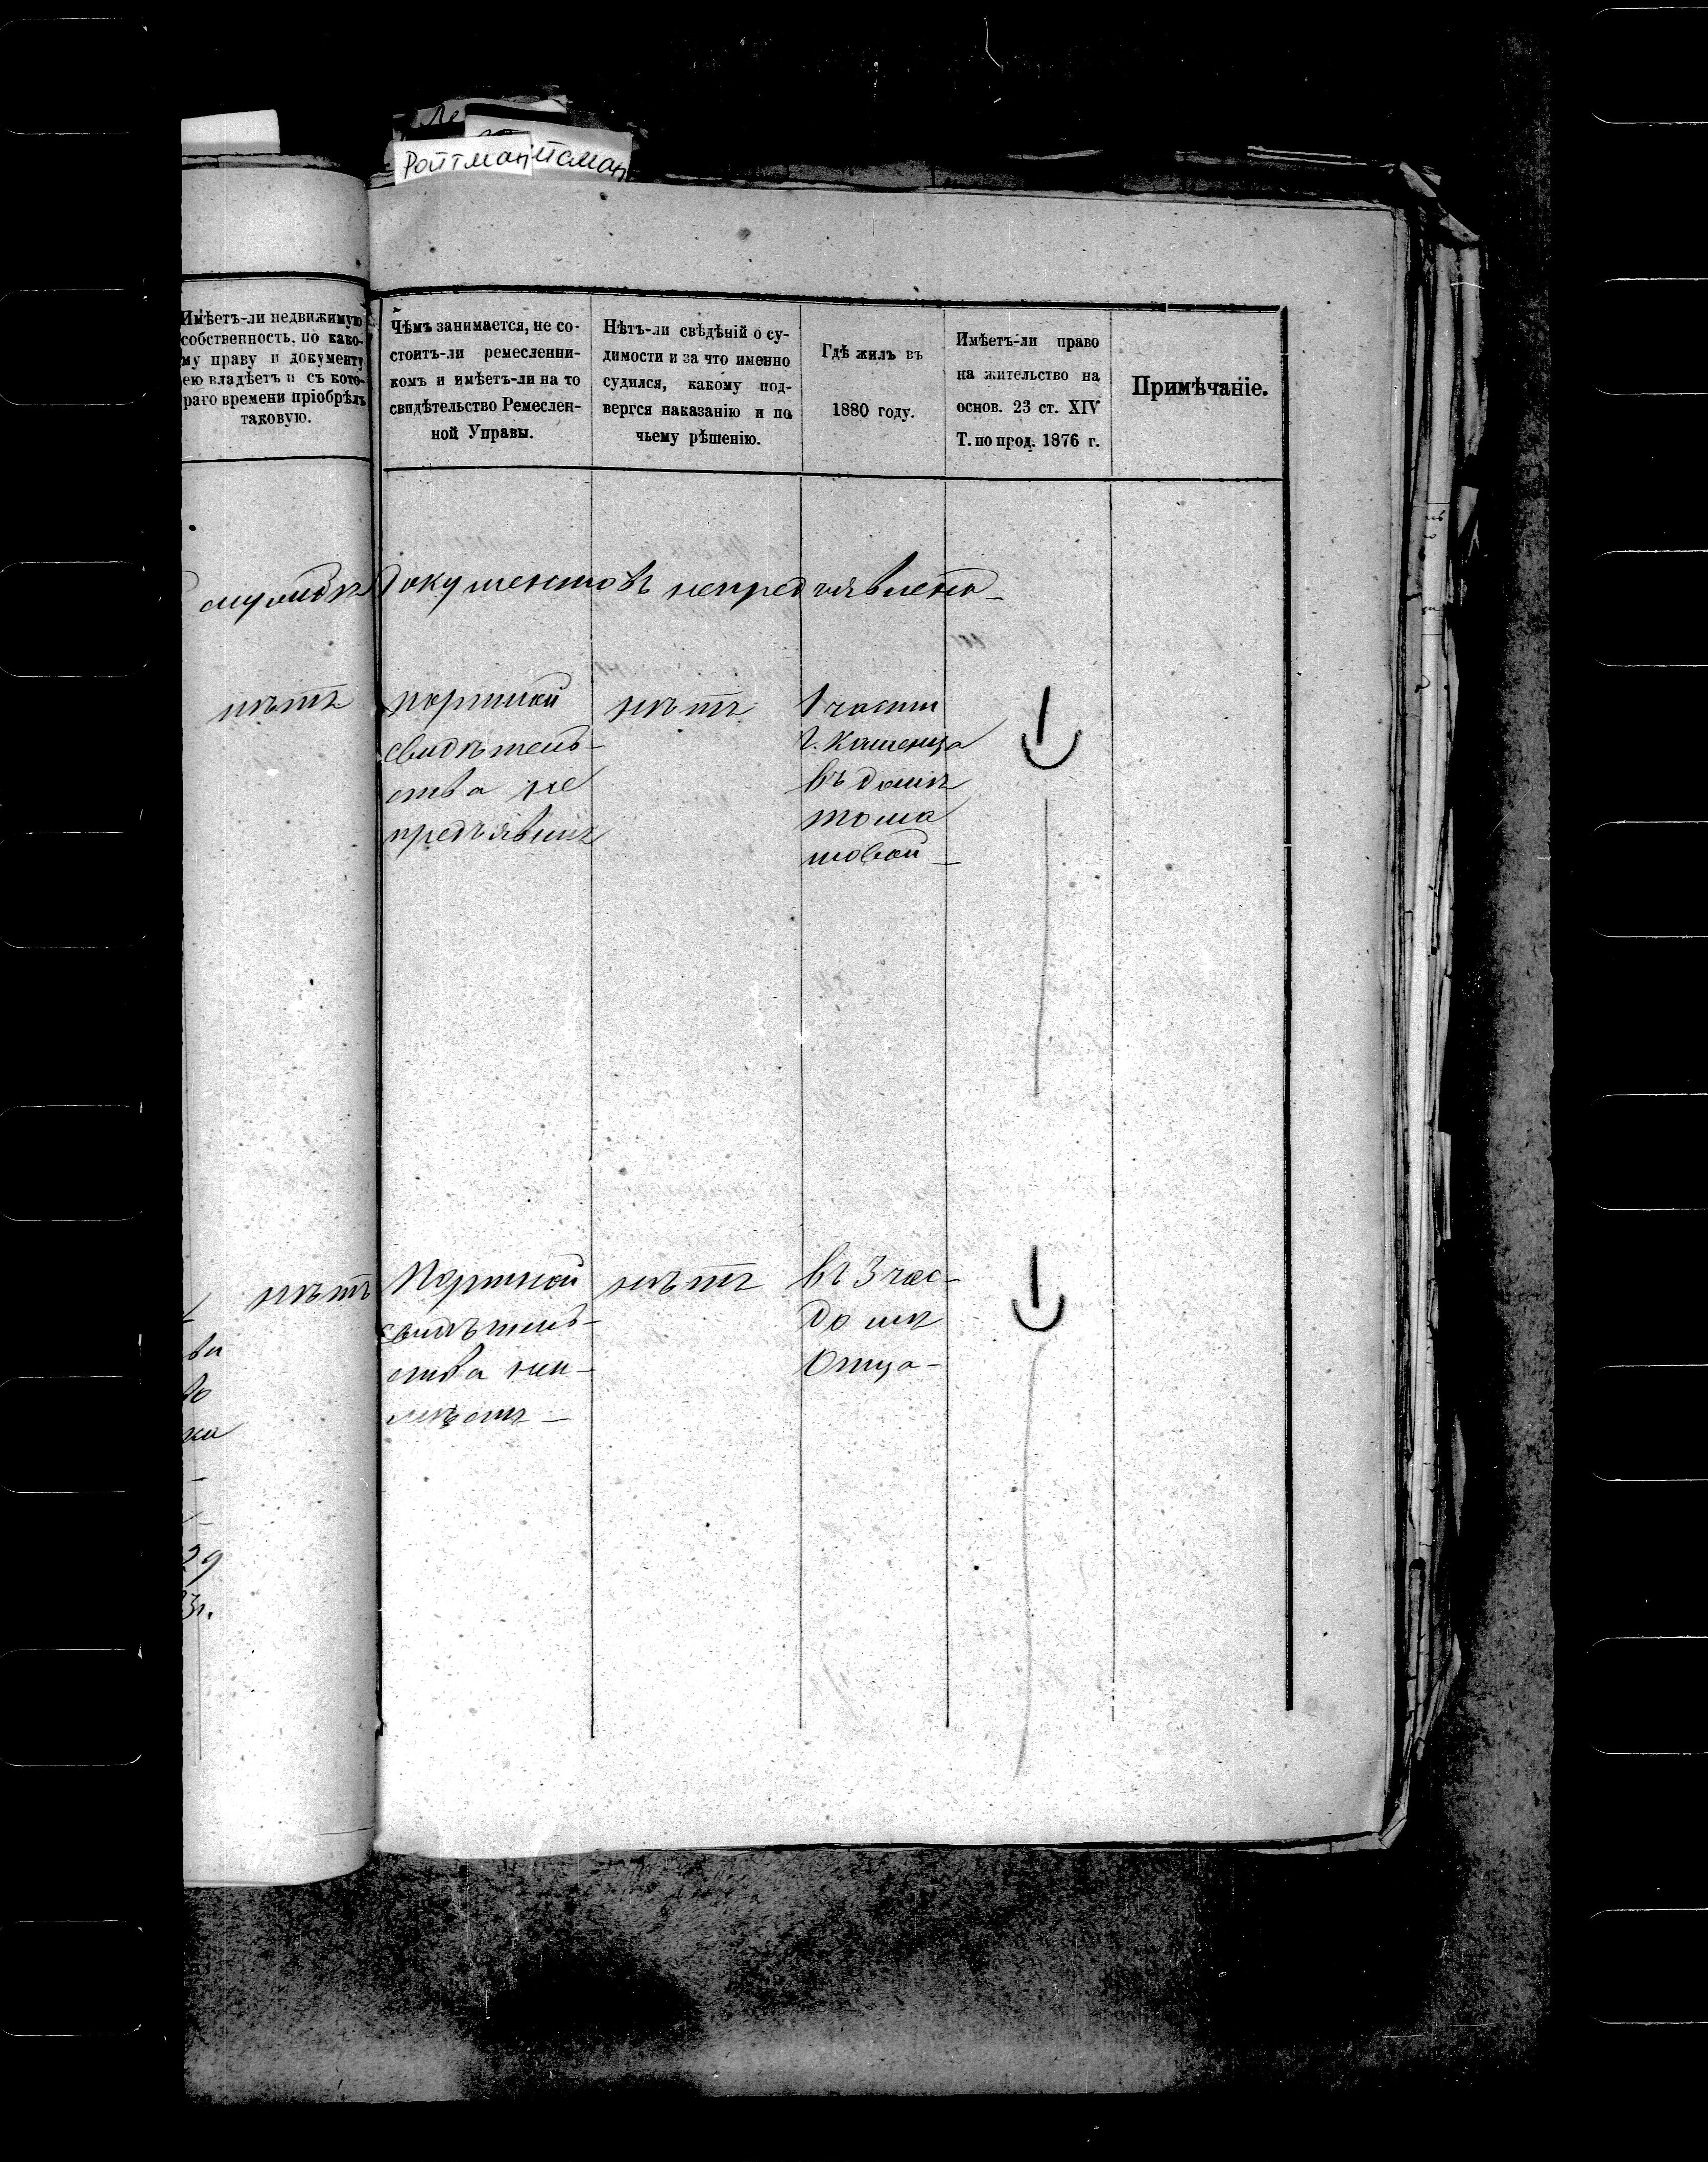 Ройтман
Имѣетъ-ли недвижимую
собственность, по како-
му праву и документу
ею владѣетъ и съ кото-
раго времени пріобрѣлъ
таковую.
Чѣмъ занимается, не со-
стоитъ-ли ремесленни-
комъ и имѣетъ-ли на то
свидѣтельство Ремеслен-
ной Управы.
Нѣтъ-ли свѣдѣній о су-
димости и за что именно
судился, какому под-
вергся наказанію и по
чьему рѣшенію.
Гдѣ жилъ въ
1880 году.
Имѣетъ-ли право
на жительство на
основ. 23 ст. XIV
Т. по прод. 1876 г.
Примѣчаніе.
Документовъ непредъявлено
нѣтъ
портной
свидѣтель-
ства не
предъявилъ
нѣтъ
1 части
г. Каменца
въ домѣ
тома
шовой
нѣтъ
Портной
свидѣтель-
ства неи-
мѣетъ
нѣтъ
въ 3 час-
домѣ
Отца
29